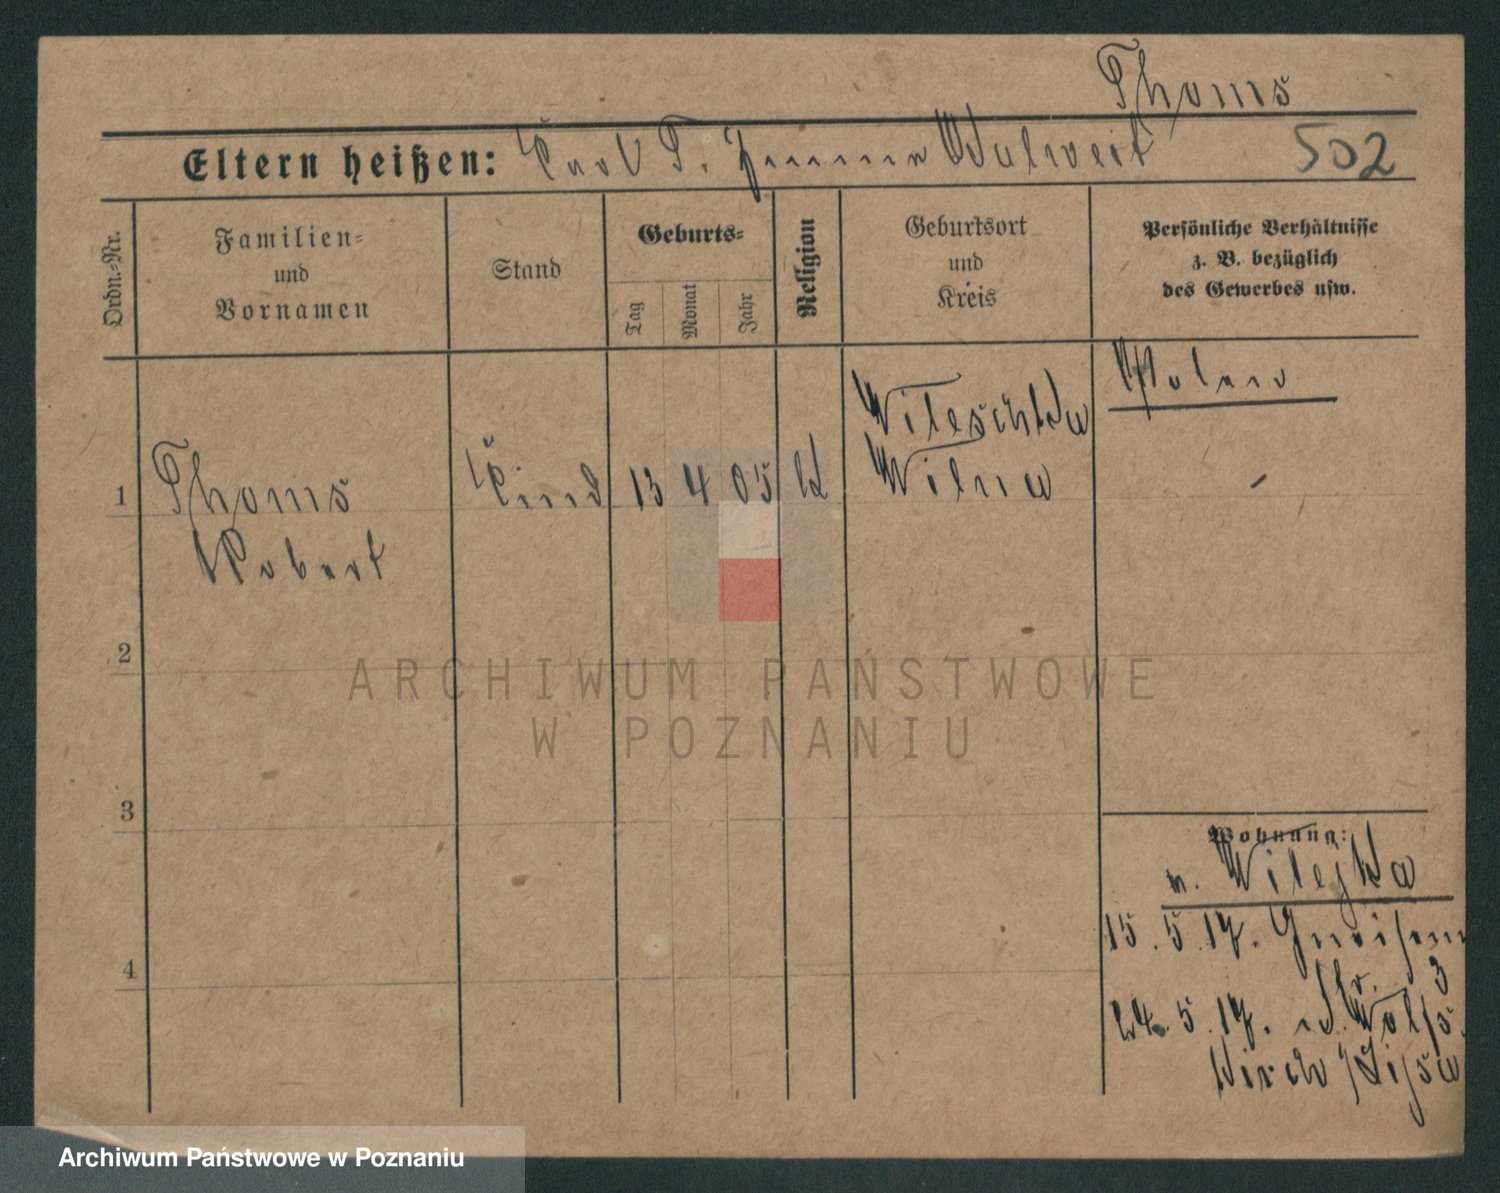 Thoms
Eltern heißen: Karl T. Emma Walweit 502
Ordn.-Nr.
Familien-
und
Vornamen
Stand
Geburts-
Tag
Monat
Jahr
Religion
Geburtsort
und
Kreis
Persönliche Verhältnisse
z. B. bezüglich
des Gewerbes usw.
Polen
1 Thoms Kind 13 4 05
Wilna
Robert
2
ARCHIWUM PAŃSTWOWE
W POZNANIU
3
Wohnung:
n. Wilejka
15.5.17.
Str. 3
24.5.17.
4
Archiwum Państwowe w Poznaniu